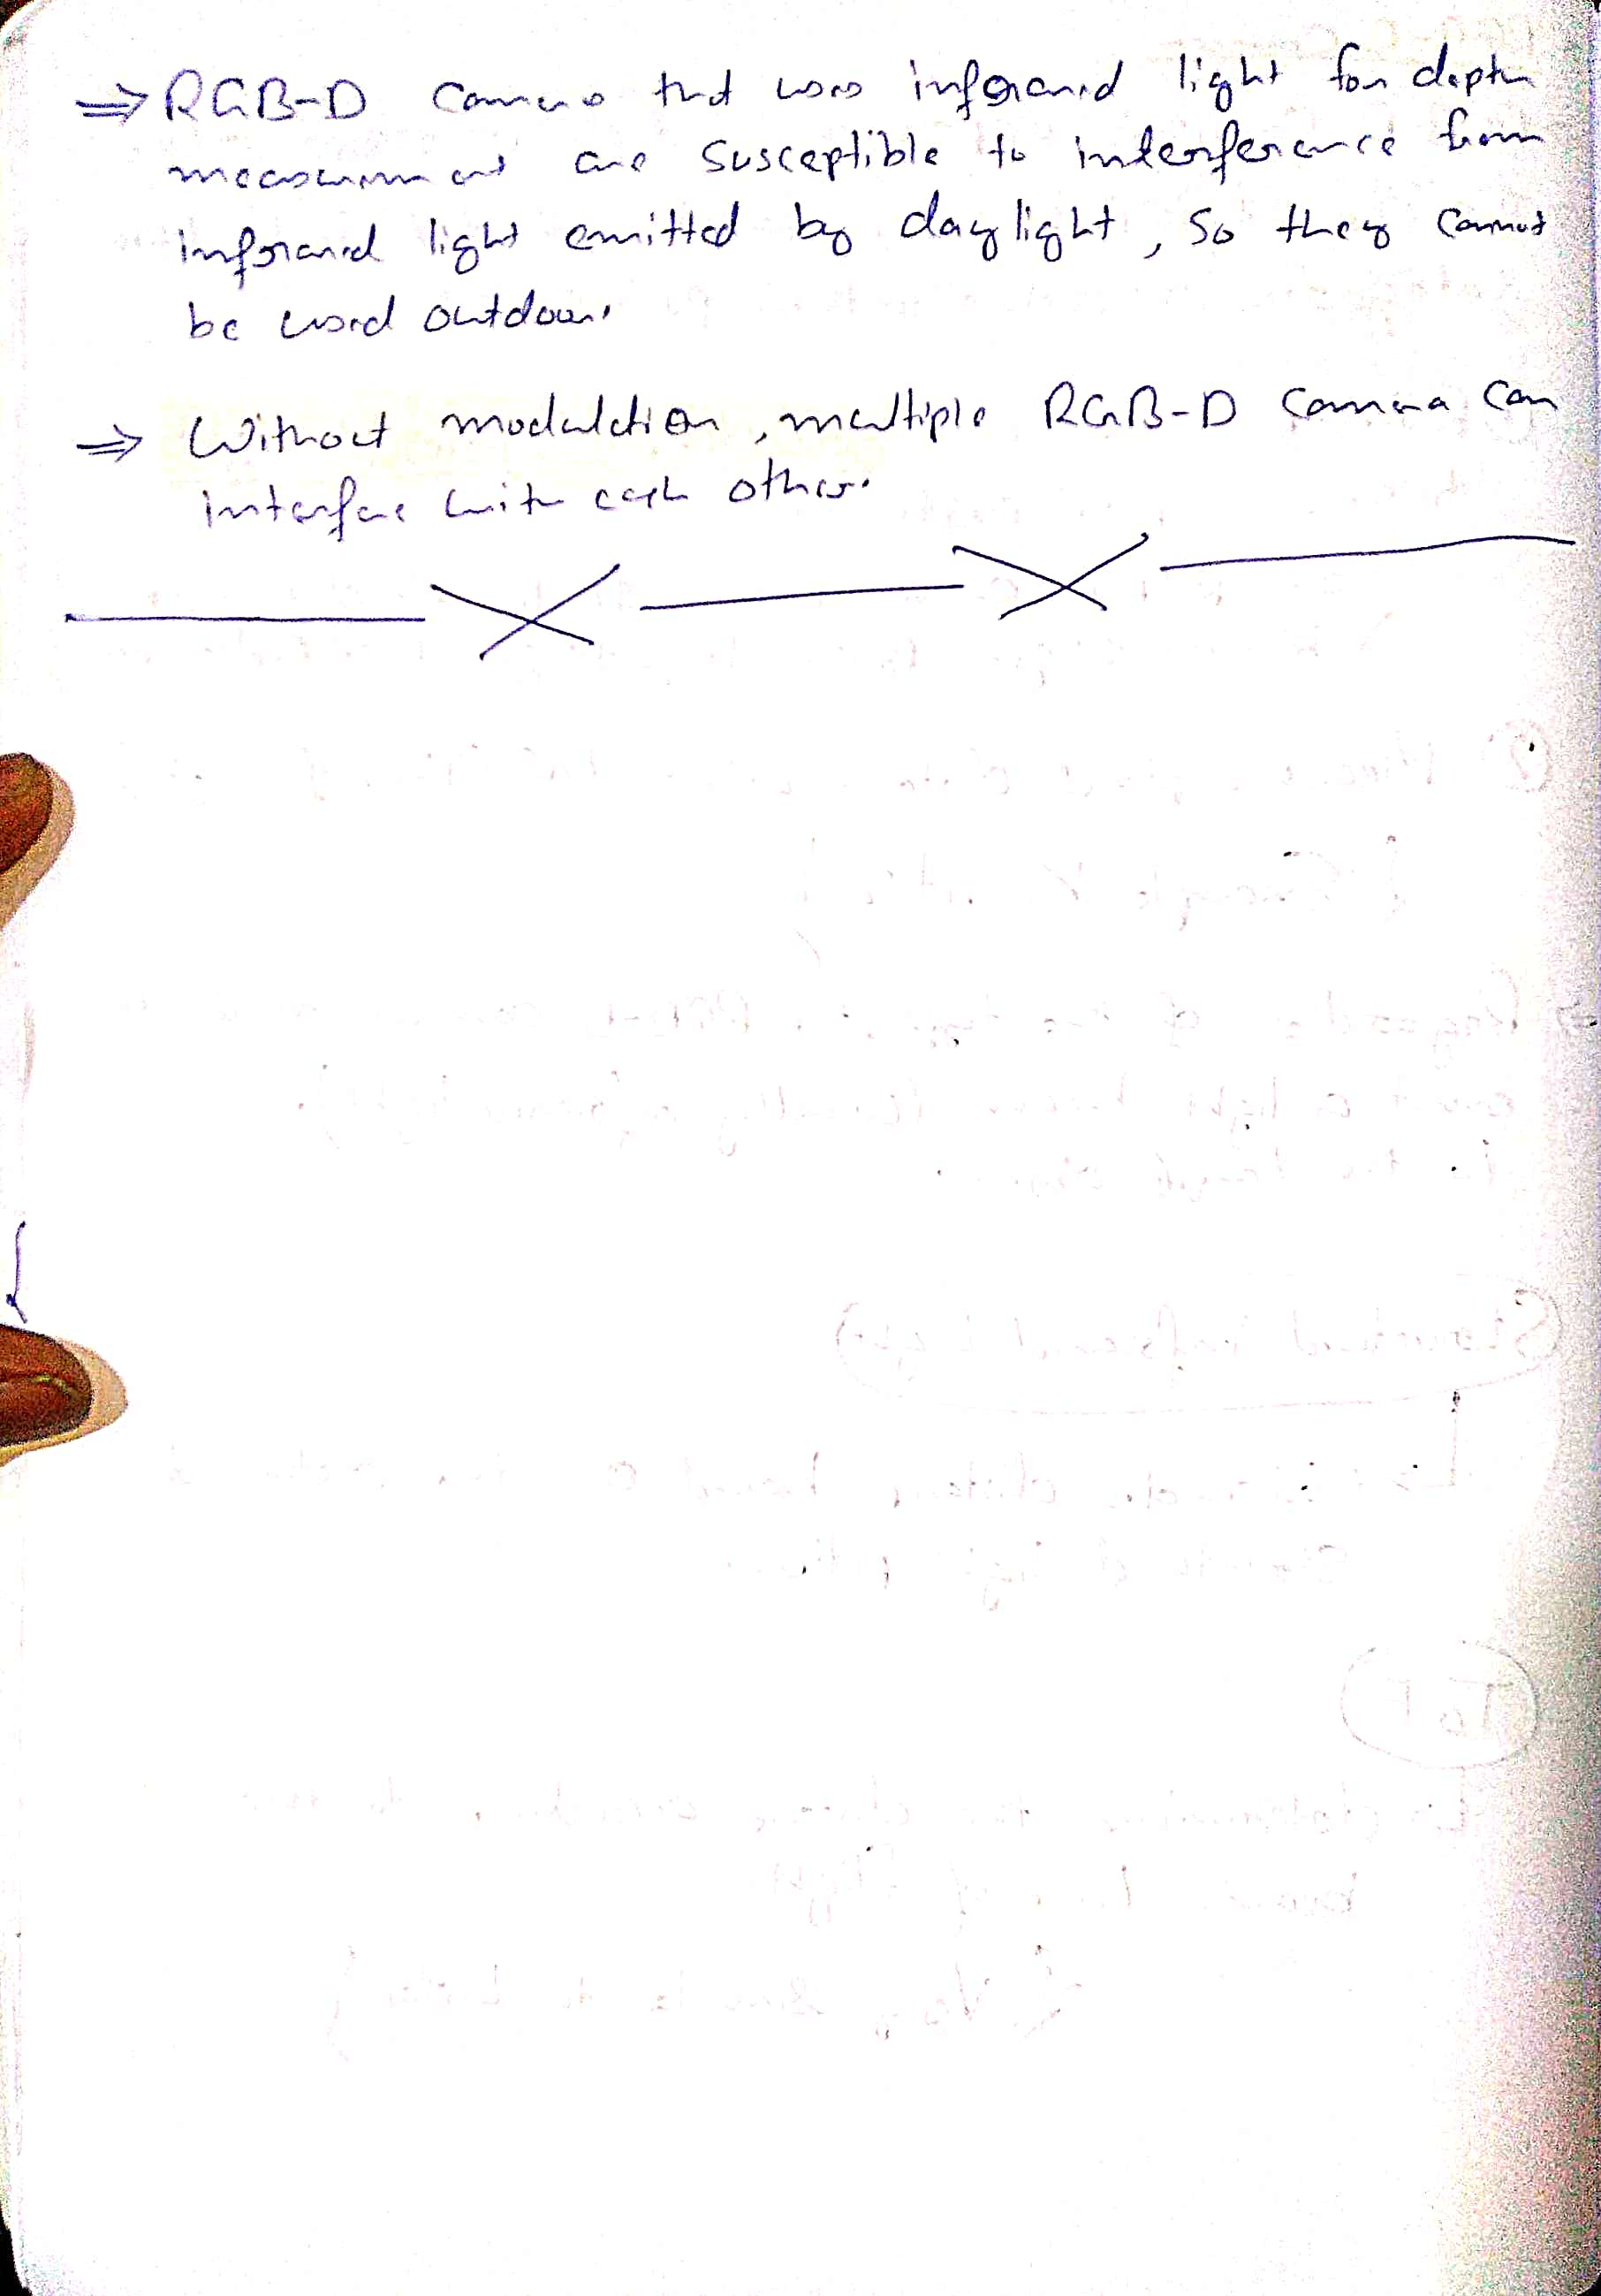 ⇒ RGB-D camera that uses infrared light for depth
measurement are susceptible to interference from
infrared light emitted by daylight, so they cannot
be used outdoor.
⇒ Without modulation, multiple RGB-D camera can
interfere with each other.